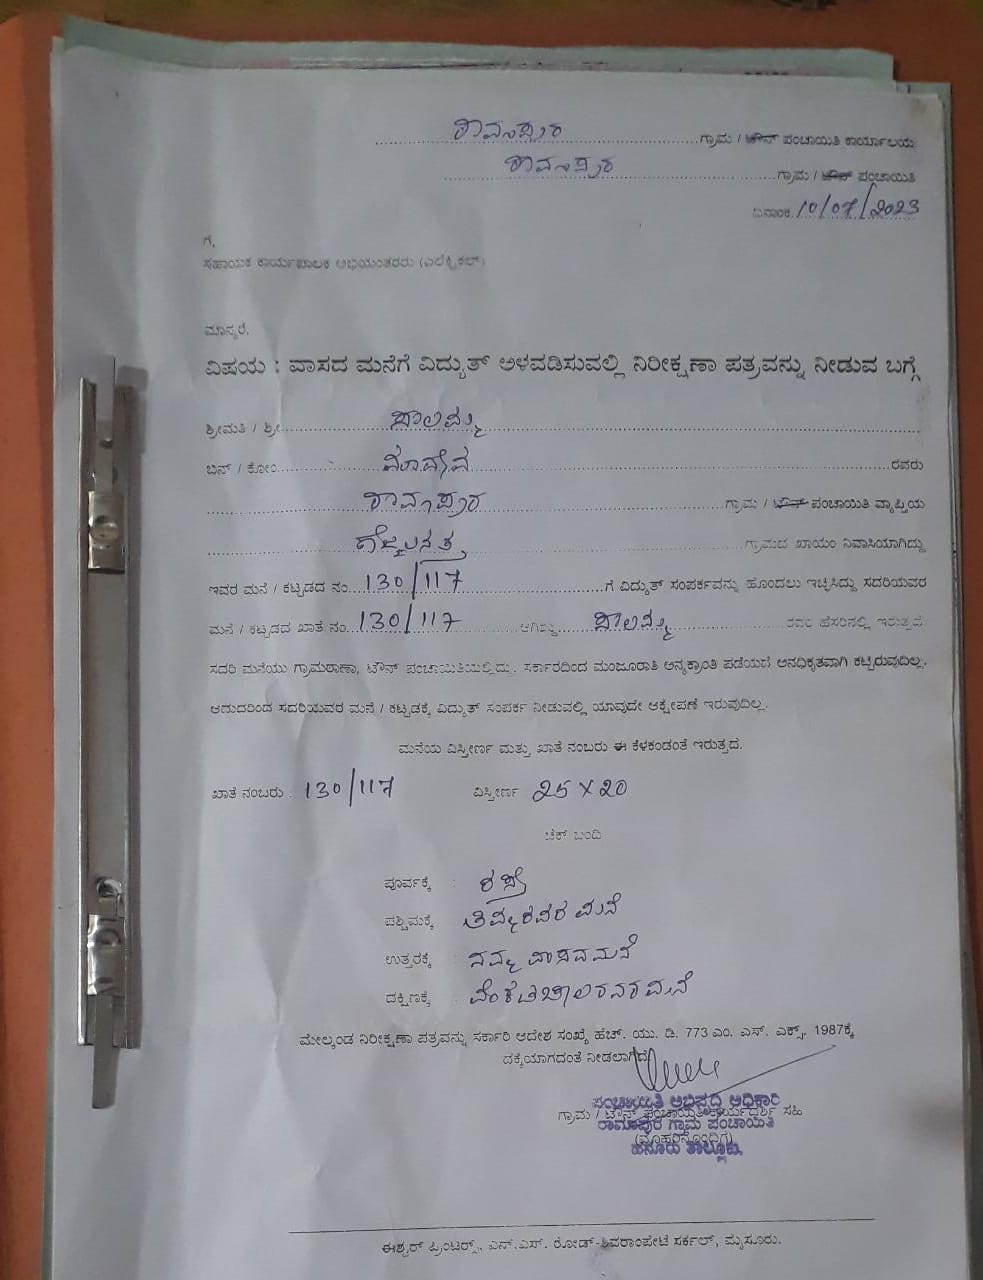 ರಾಮಾಪುರ ಗ್ರಾಮ / ಟೌನ್ ಪಂಚಾಯಿತಿ ಕಾರ್ಯಾಲಯ
ರಾಮಾಪುರ ಗ್ರಾಮ / ಟೌನ್ ಪಂಚಾಯಿತಿ
ದಿನಾಂಕ. 10/07/2023
ಗೆ,
ಸಹಾಯಕ ಕಾರ್ಯಪಾಲಕ ಅಭಿಯಂತರರು (ಎಲೆಕ್ಟ್ರಿಕಲ್)
ಮಾನ್ಯರೆ,
ವಿಷಯ : ವಾಸದ ಮನೆಗೆ ವಿದ್ಯುತ್ ಅಳವಡಿಸುವಲ್ಲಿ ನಿರೀಕ್ಷಣಾ ಪತ್ರವನ್ನು ನೀಡುವ ಬಗ್ಗೆ
ಶ್ರೀಮತಿ / ಶ್ರೀ
ಬಿನ್ / ಕೋಂ ಮಹದೇವ ರವರು
ರಾಮಾಪುರ ಗ್ರಾಮ / ಟೌನ್ ಪಂಚಾಯಿತಿ ವ್ಯಾಪ್ತಿಯ
ಗ್ರಾಮದ ಖಾಯಂ ನಿವಾಸಿಯಾಗಿದ್ದು
ಇವರ ಮನೆ / ಕಟ್ಟಡದ ನಂ. 130/117 ಗೆ ವಿದ್ಯುತ್ ಸಂಪರ್ಕವನ್ನು ಹೊಂದಲು ಇಚ್ಛಿಸಿದ್ದು ಸದರಿಯವರ
ಮನೆ / ಕಟ್ಟಡದ ಖಾತೆ ನಂ. 130/117 ಆಗಿದ್ದು ರವರ ಹೆಸರಿನಲ್ಲಿ ಇರುತ್ತದೆ.
ಸದರಿ ಮನೆಯು ಗ್ರಾಮಠಾಣಾ, ಟೌನ್ ಪಂಚಾಯಿತಿಯಲ್ಲಿದ್ದು. ಸರ್ಕಾರದಿಂದ ಮಂಜೂರಾತಿ ಅನ್ಯಕ್ರಾಂತಿ ಪಡೆಯದೆ ಅನಧಿಕೃತವಾಗಿ ಕಟ್ಟಿರುವುದಿಲ್ಲ.
ಆದುದರಿಂದ ಸದರಿಯವರ ಮನೆ / ಕಟ್ಟಡಕ್ಕೆ ವಿದ್ಯುತ್ ಸಂಪರ್ಕ ನೀಡುವಲ್ಲಿ ಯಾವುದೇ ಆಕ್ಷೇಪಣೆ ಇರುವುದಿಲ್ಲ.
ಮನೆಯ ವಿಸ್ತೀರ್ಣ ಮತ್ತು ಖಾತೆ ನಂಬರು ಈ ಕೆಳಕಂಡಂತೆ ಇರುತ್ತದೆ.
ಖಾತೆ ನಂಬರು : 130/117 ವಿಸ್ತೀರ್ಣ 25 X 20
ಚೆಕ್ ಬಂದಿ
ಪೂರ್ವಕ್ಕೆ : ರಸ್ತೆ
ಪಶ್ಚಿಮಕ್ಕೆ ಮನೆ
ಉತ್ತರಕ್ಕೆ : ವಾಸದಮನೆ
ದಕ್ಷಿಣಕ್ಕೆ : ವೆಂಕಟಾಚಾಲರವರಮನೆ
ಮೇಲ್ಕಂಡ ನಿರೀಕ್ಷಣಾ ಪತ್ರವನ್ನು ಸರ್ಕಾರಿ ಆದೇಶ ಸಂಖ್ಯೆ ಹೆಚ್. ಯು. ಡಿ. 773 ಎಂ. ಎನ್. ಎಕ್ಸ್. 1987ಕ್ಕೆ
ದಕ್ಕೆಯಾಗದಂತೆ ನೀಡಲಾಗಿದೆ
ಪಂಚಾಯಿತಿ ಅಭಿವೃದ್ಧಿ ಅಧಿಕಾರಿ
ಗ್ರಾಮ / ಟೌನ್ ಪಂಚಾಯಿತಿ ಕಾರ್ಯದರ್ಶಿ ಸಹಿ
ರಾಮಾಪುರ ಗ್ರಾಮ ಪಂಚಾಯಿತಿ
(ಮೊಹರಿನೊಂದಿಗೆ)
ಹನೂರು ತಾಲ್ಲೂಕು.
ಈಶ್ವರ್ ಪ್ರಿಂಟರ್ಸ್, ಎನ್.ಎಸ್. ರೋಡ್-ಶಿವರಾಂಪೇಟೆ ಸರ್ಕಲ್, ಮೈಸೂರು.